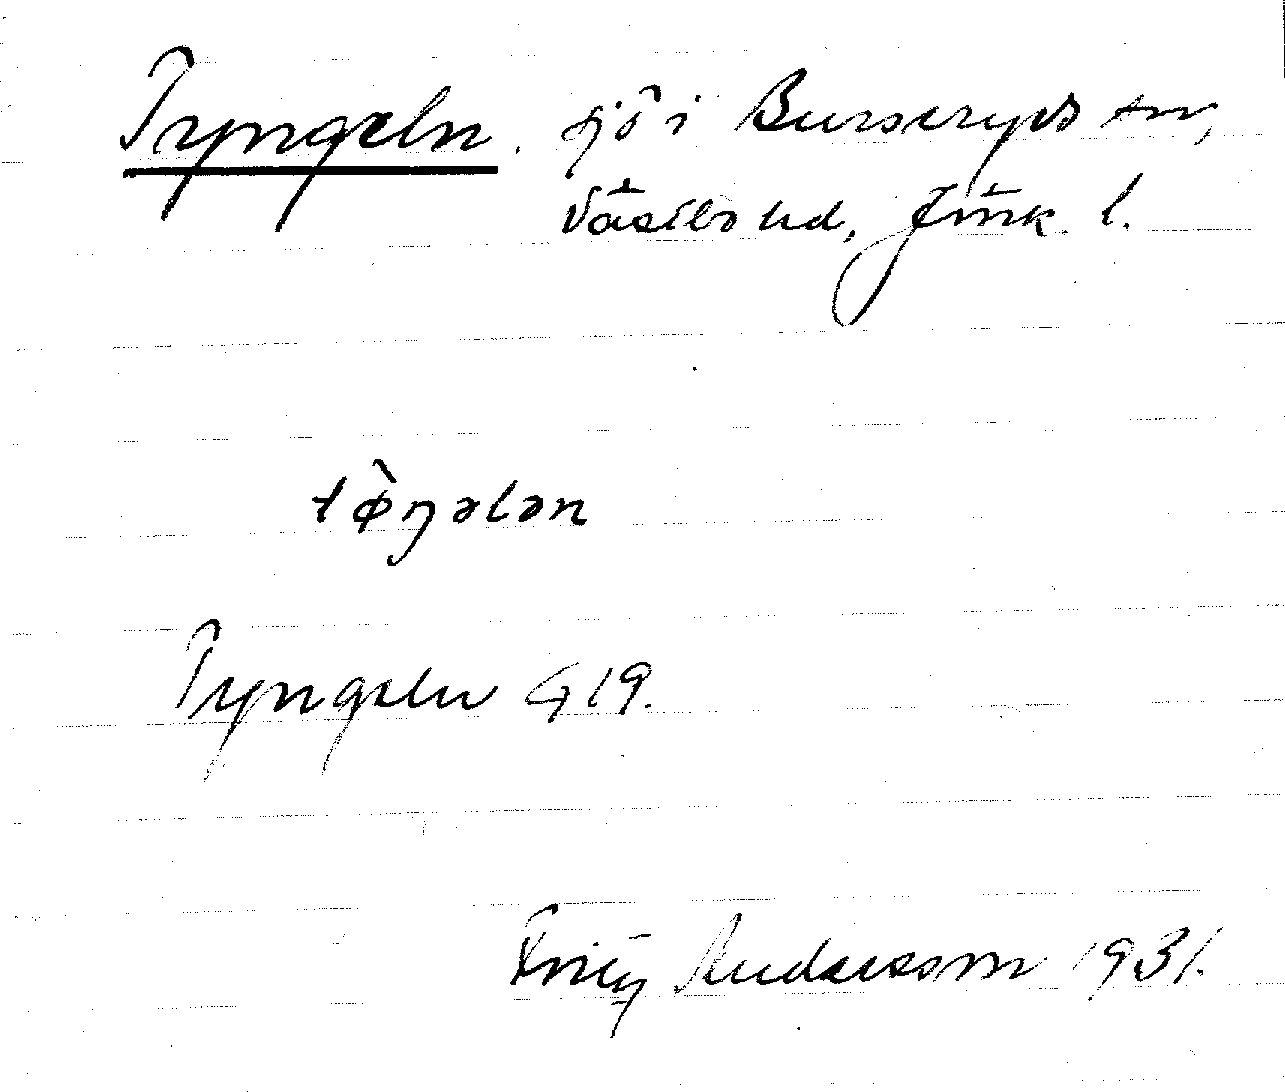 Tyngeln. sjö i Burseryds sn,
Västbo hd, Jönk. l.
tø̀ŋələn
Tyngeln G 19.
Fritz Andersson 1931.